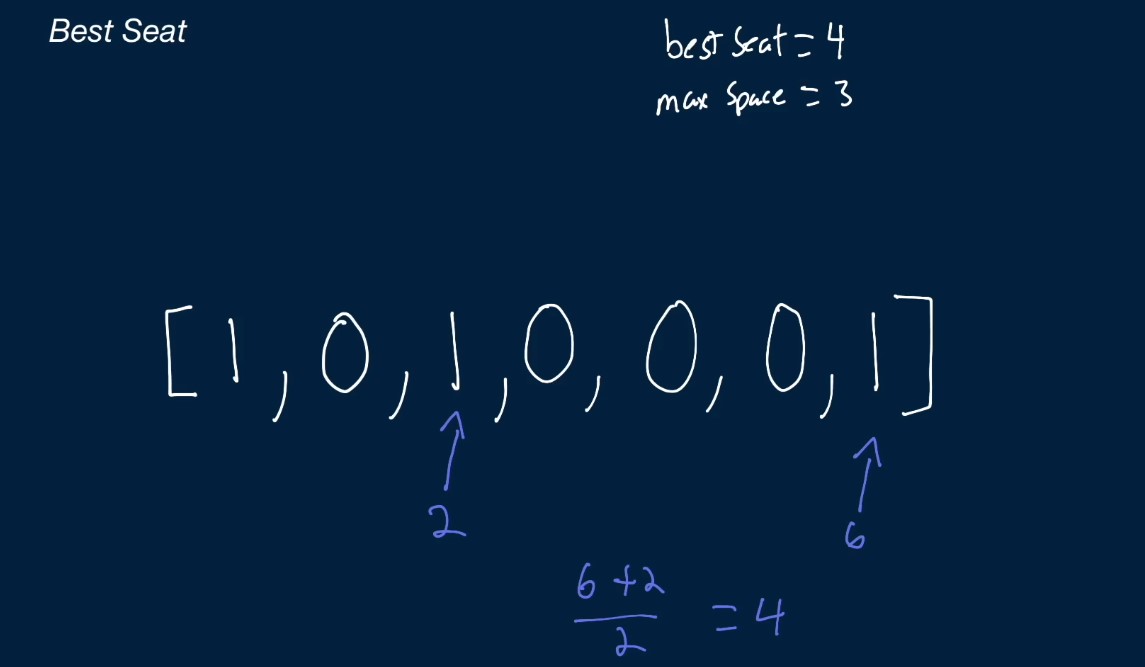 Best Seat
best seat = 4
max space = 3
[1, 0, 1, 0, 0, 0, 1]
2
6
6 + 2
2
= 4